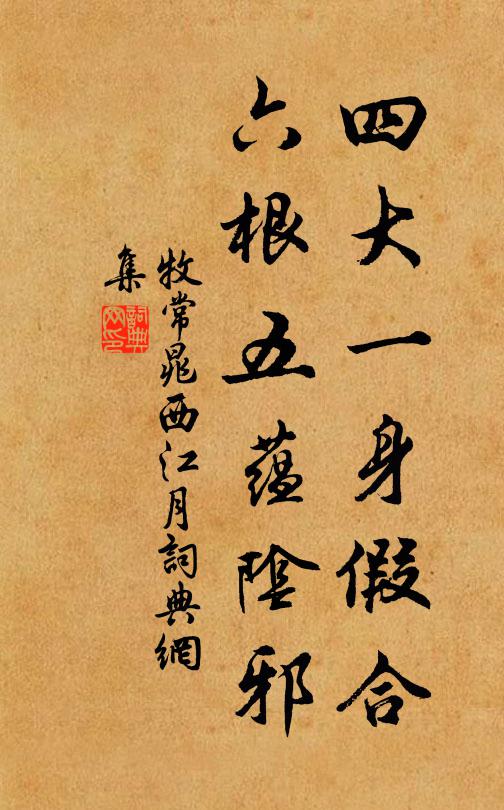 四大一身假合
六根五蘊陰邪
牧常晁西江月詞典網
集
詞典
网印